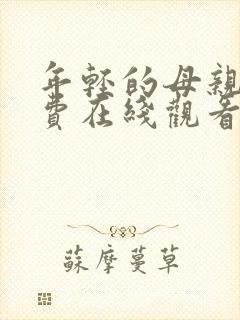 年轻的母亲
費在綫觀看
蘇摩蔓草